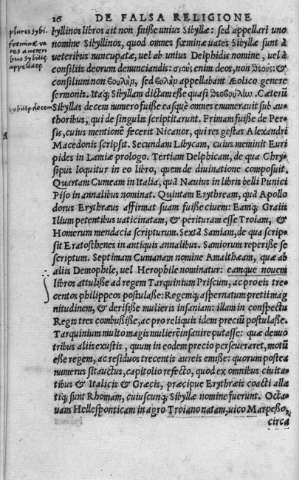 26 DE FALSA RELIGIONE
plures sybil-
Sibyllinos libros ait non fuisse unius Sibyllæ: sed appellari uno
nomine Sibyllinos, quod omnes fœminæ uates Sibyllæ sunt à
ueteribus nuncupatæ, uel ab unius Delphidis nomine, uel à
consiliis deorum denunciandis: σιοὺς enim deos, non
consilium non βουλὴν, sed appellabant Æolico genere
sermonis. Itaq; Sibyllam dictam esse quasi Cæterũ
sybillæ decem
Sibyllas decem numero fuisse easq; omnes enumerauit sub au-
thoribus, qui de singulis scriptitarunt. Primam fuisse de Per-
sis, cuius mentionẽ fecerit Nicanor, qui res gestas Alexandri
Macedonis scripsit. Secundam Libycam, cuius meminit Euri
pides in Lamiæ prologo. Tertiam Delphicam, de qua Chry-
sippus loquitur in eo libro, quem de diuinatione composuit.
Quartam Cumeam in Italia, quã Næuius in libris belli Punici
Piso in annalibus nominat. Quintam Erythream, quã Apollo
dorus Erythræus affirmat suam fuisse ciuem: Eamq; Graiis
Ilium petentibus uaticinatam, & perituram esse Troiam, &
Homerum mendacia scripturum. Sextã Samiam, de qua scri-
psit Eratosthenes in antiquis annalibus Samiorum reperisse se
scriptum. Septimam Cumanam nomine Amaltheam, quæ ab
aliis Demophile, uel Herophile nominatur: eamque nouem
libros attulisse ad regem Tarquinium Priscum, ac pro eis tre-
centos philippeos postulasse: Regemq; aspernatum pretii mag
nitudinem, & derisisse mulieris insaniam: illam in conspectu
Regis tres combusisse, ac pro reliquis idem preciũ postulasse:
Tarquinium multo magis mulierẽ insanire putasse: quæ denuo
tribus aliis exustis, quum in eodem precio perseueraret, motũ
esse regem, ac residuos trecentis aureis emisse: quorum postea
numerus sit auctus, capitolio refecto, quod ex omnibus ciuita
tibus & Italicis & Græcis, præcipue Erythræis coacti alla
tiq; sunt Rhomam, cuiuscunq; Sibyllæ nomine fuerunt. Octa-
uam Hellesponticam in agro Troiano natam, uico Marpesso,
circa